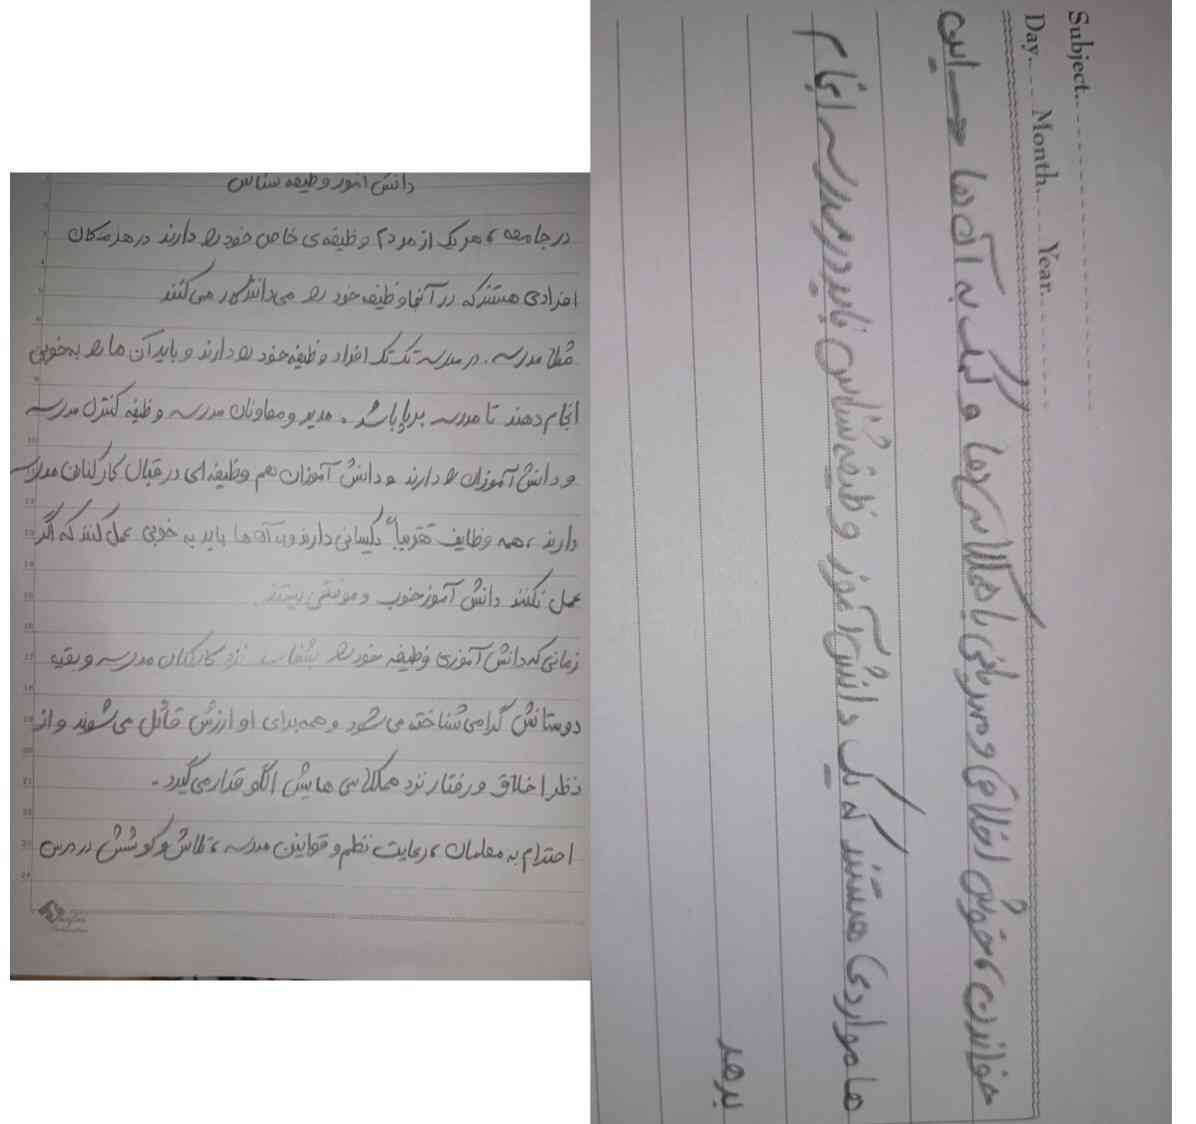 دانش آموز وظیفه شناس
در جامعه ، هر یک از مردم وظیفه ی خاص خود را دارند در هر مکان
افرادی هستند که در آنجا وظیفه خود را می دانند کار می کنند
مثلا مدرسه . در مدرسه تک تک افراد وظیفه خود را دارند و باید آن ها را به خوبی
انجام دهند تا مدرسه برپا باشد . مدیر و معاونان مدرسه وظیفه کنترل مدرسه
و دانش آموزان را دارند و دانش آموزان هم وظیفه ای در قبال کارکنان مدرسه
دارند ، همه وظایف تقریباً یکسانی دارند و به آن ها باید به خوبی عمل کنند که اگر
عمل نکنند دانش آموز خوب و موفقی نیستند.
زمانی که دانش آموزی وظیفه خود را بشناسد نزد کارکنان مدرسه و بقیه
دوستانش گرامی شناخته می شود و همه برای او ارزش قائل می شوند و از
نظر اخلاق و رفتار نزد همکلاسی هایش الگو قرار می گیرد .
احترام به معلمان ، رعایت نظم و قوانین مدرسه ، تلاش و کوشش در درس
Subject
Day Month Year
خواندن ، خوش اخلاقی و مهربانی با همکلاسی ها و کمک به آن ها
ها مواردی هستند که یک دانش آموز وظیفه شناس باید در مدرسه انجام
بدهد